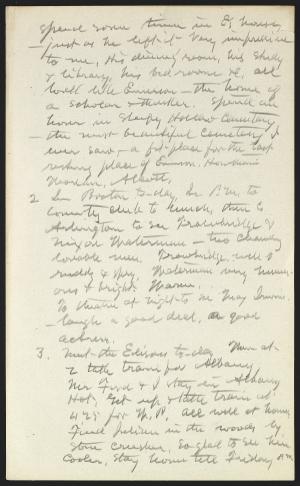 spend some time in E's house,
— just as he left it. Very impressive
to me, His dining room, his study
& library, his bed rooms &c, all
well like Emerson — the home of
a scholar & thinker. Spend an
hour in Sleepy Hollow Cemetery,
— the most beautiful Cemetery I
ever saw — a fit place for the last
resting place of Emerson, Hawthorne
Thoreau, Alcott.
2 In Boston to-day, to
country club to lunch, then to
Arlington to see Trowbridge &
Nixon Waterman — two charming
lovable men. Trowbridge well &
ruddy & spry. Waterman very humor-
ous & bright. Warm.
To theatre at night to see May Irwin.
— laugh a good deal, a good
actress.
3. Meet the Edisons to-day. Then at
2 take train for Albany,
Mr Ford & I stay in Albany
Hot. Get up & take train at
4:25 for W.P. all well at home,
Find Julian in the woods by
stone crusher. So glad to see him
Cooler, Stay home till Friday